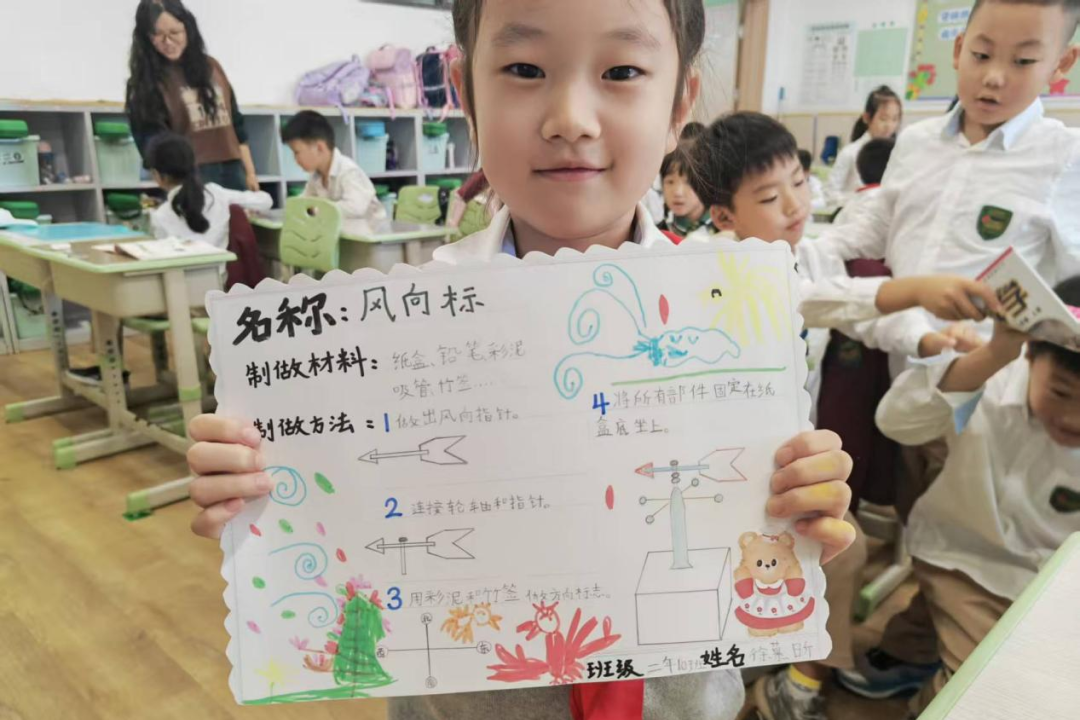 名称：风向标
制做材料：纸盒、铅笔、彩泥
吸管、竹签...
制做方法：1 做出风向指针。
2 连接轮轴和指针。
3 用彩泥和竹签做方向标志。
4 将所有部件固定在纸
盒底坐上。
班级 二年 姓名 徐
学